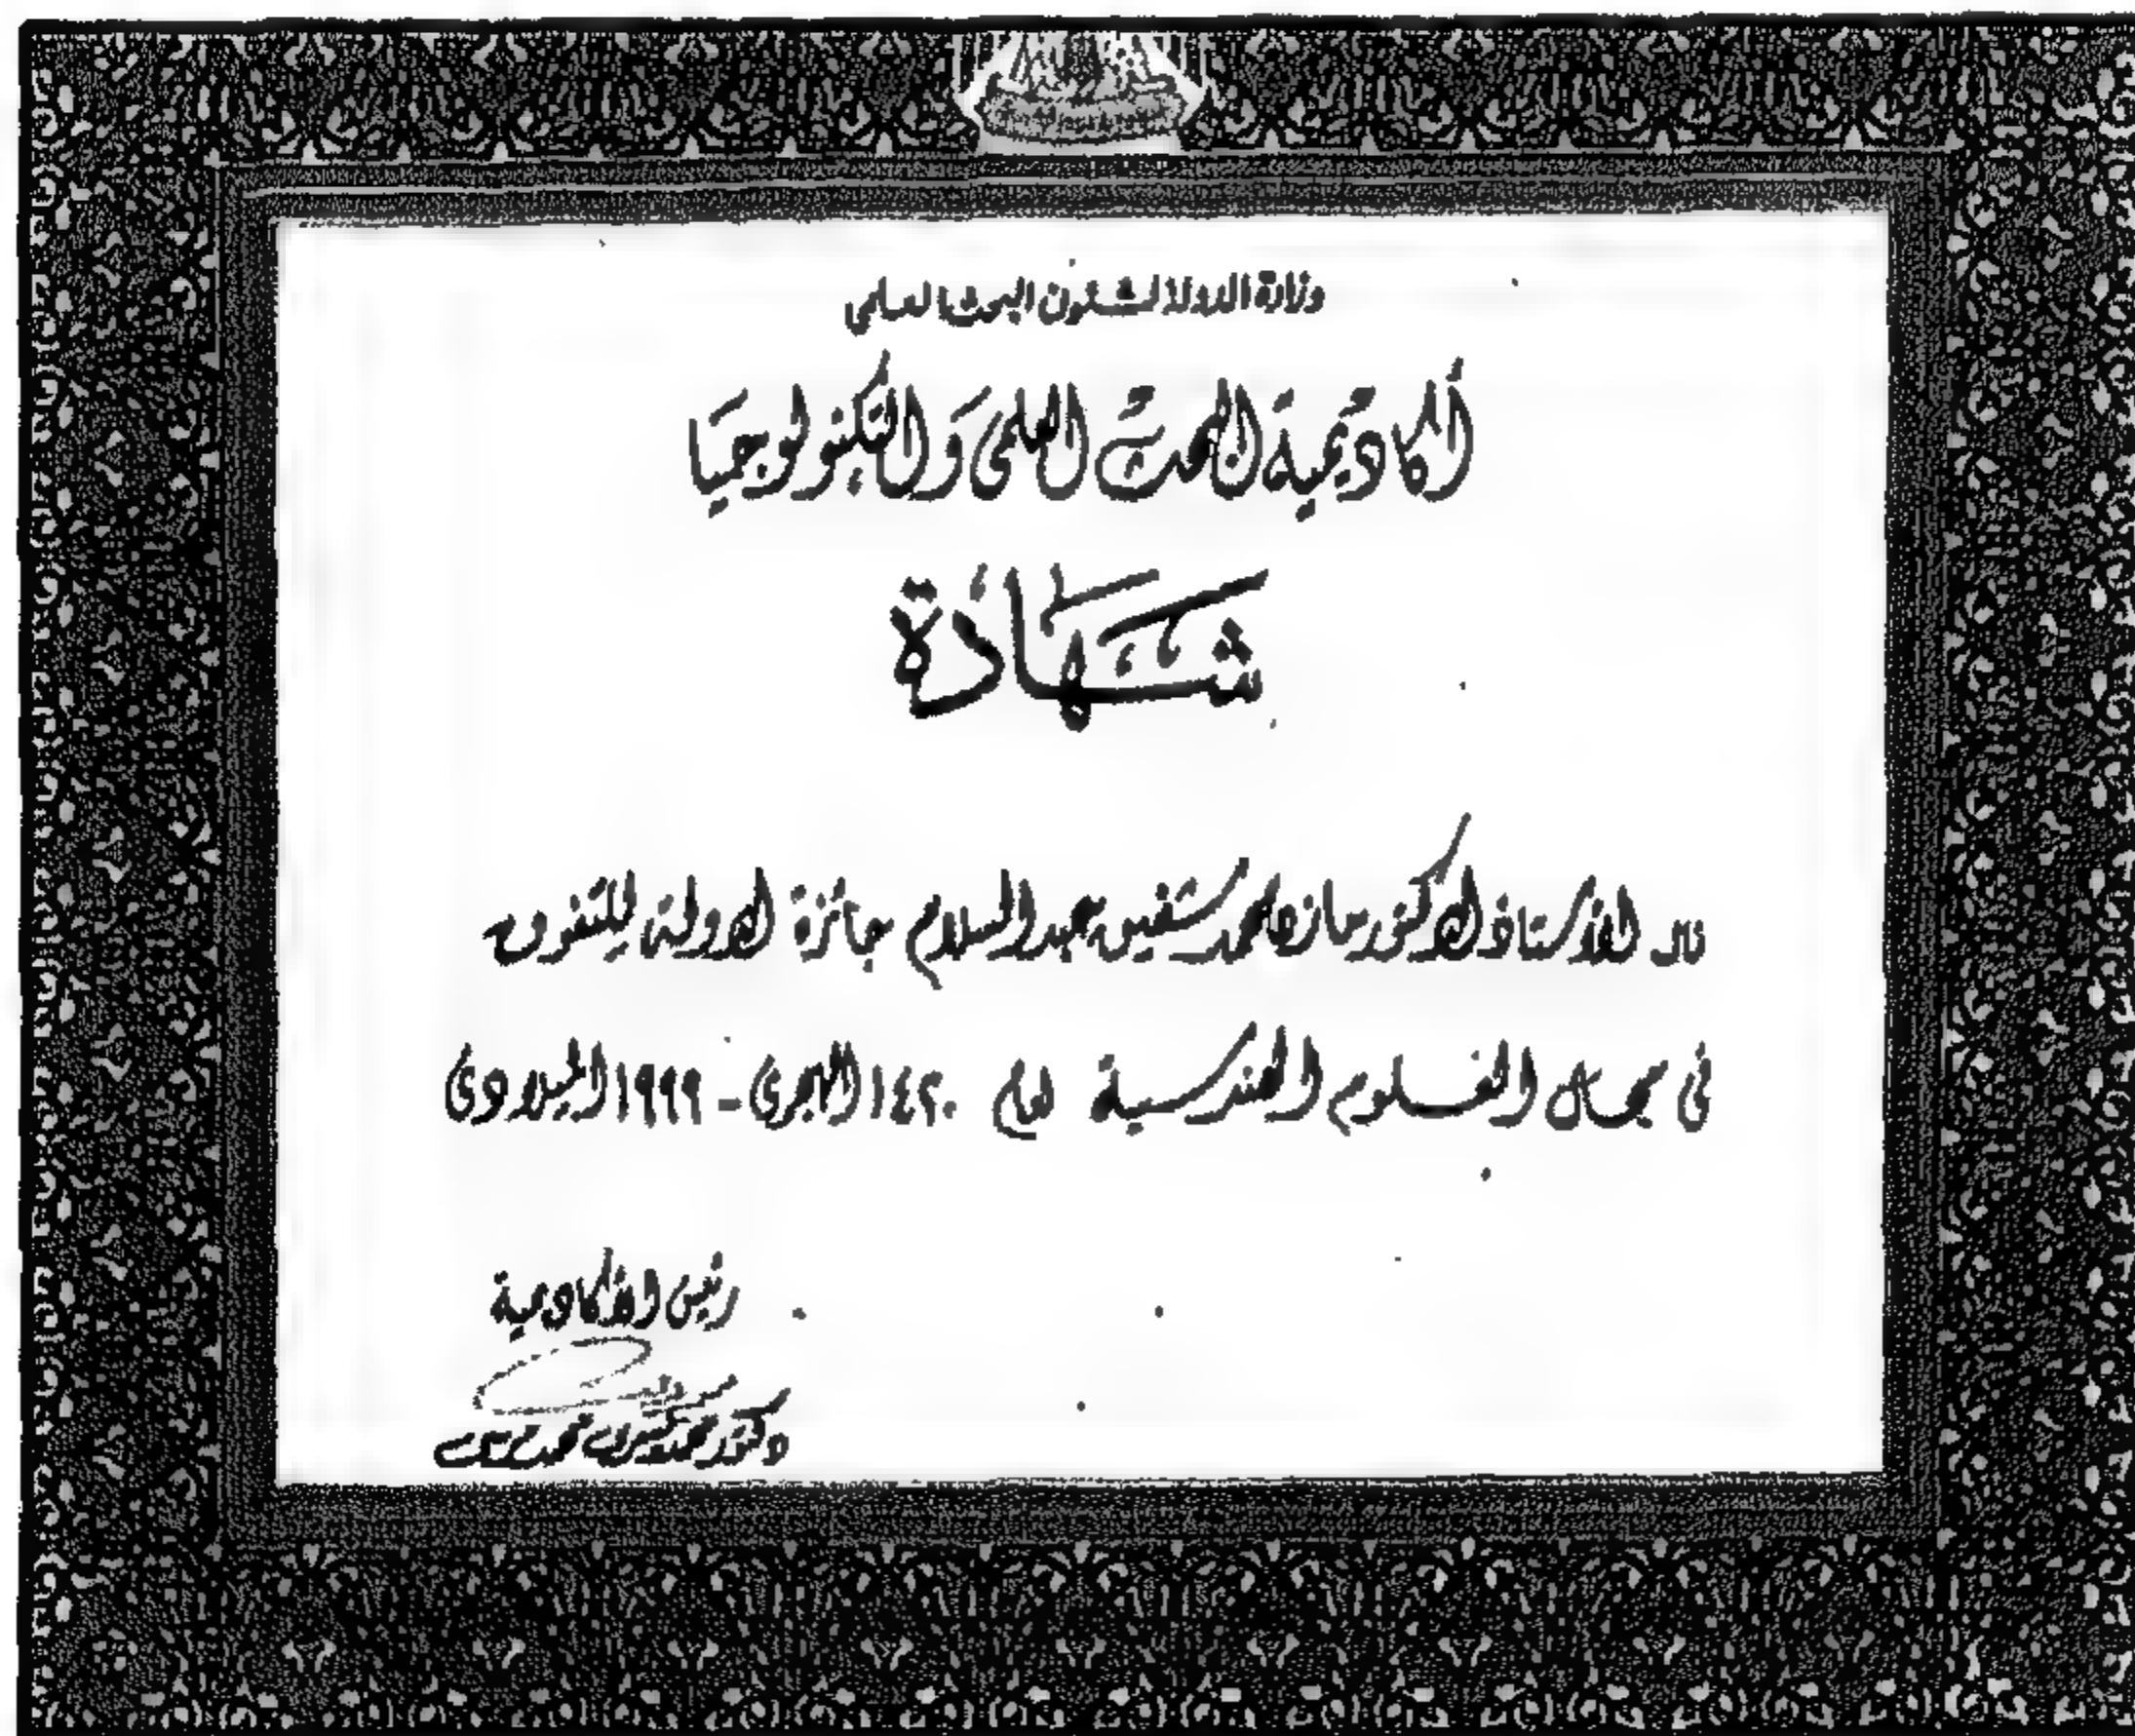 وزارة الدولة لشئون البحث العلمى
أكاديمية البحث العلمى والتكنولوجيا
شهادة
نال الأستاذ الدكتور مازن محمد شفيق عبد السلام جائزة الدولة للتفوق
فى مجال العلوم الهندسية لعام ١٤٢٠ الهجرى - ١٩٩٩ الميلادى
رئيس الأكاديمية
دكتور محمد يسرى محمد مرسى